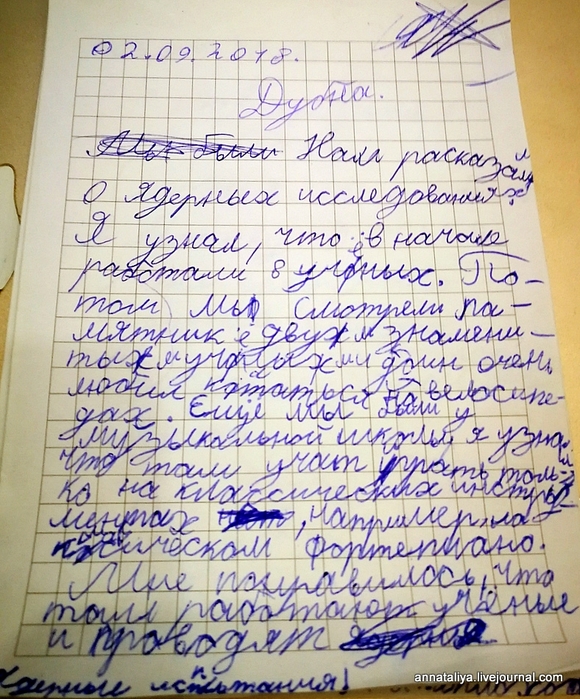 02.09.2018.
Дубна.
Мы были Нам расказали
о ядерных исследованиях.
Я узнал, что в начале
работали 8 учёных. По-
том мы смотрели па-
мятник с двумя знамени-
тыми учёными один очень
любил кататься на велосипе-
дах. Ещё мы были у
музыкальной школы я узнал
что там учат играть толь-
ко на классических инстру-
ментах, например, на
фортепиано.
Мне понравилось, что
там работают учёные
и проводят
ядерные испытания!
annataliya.livejournal.com